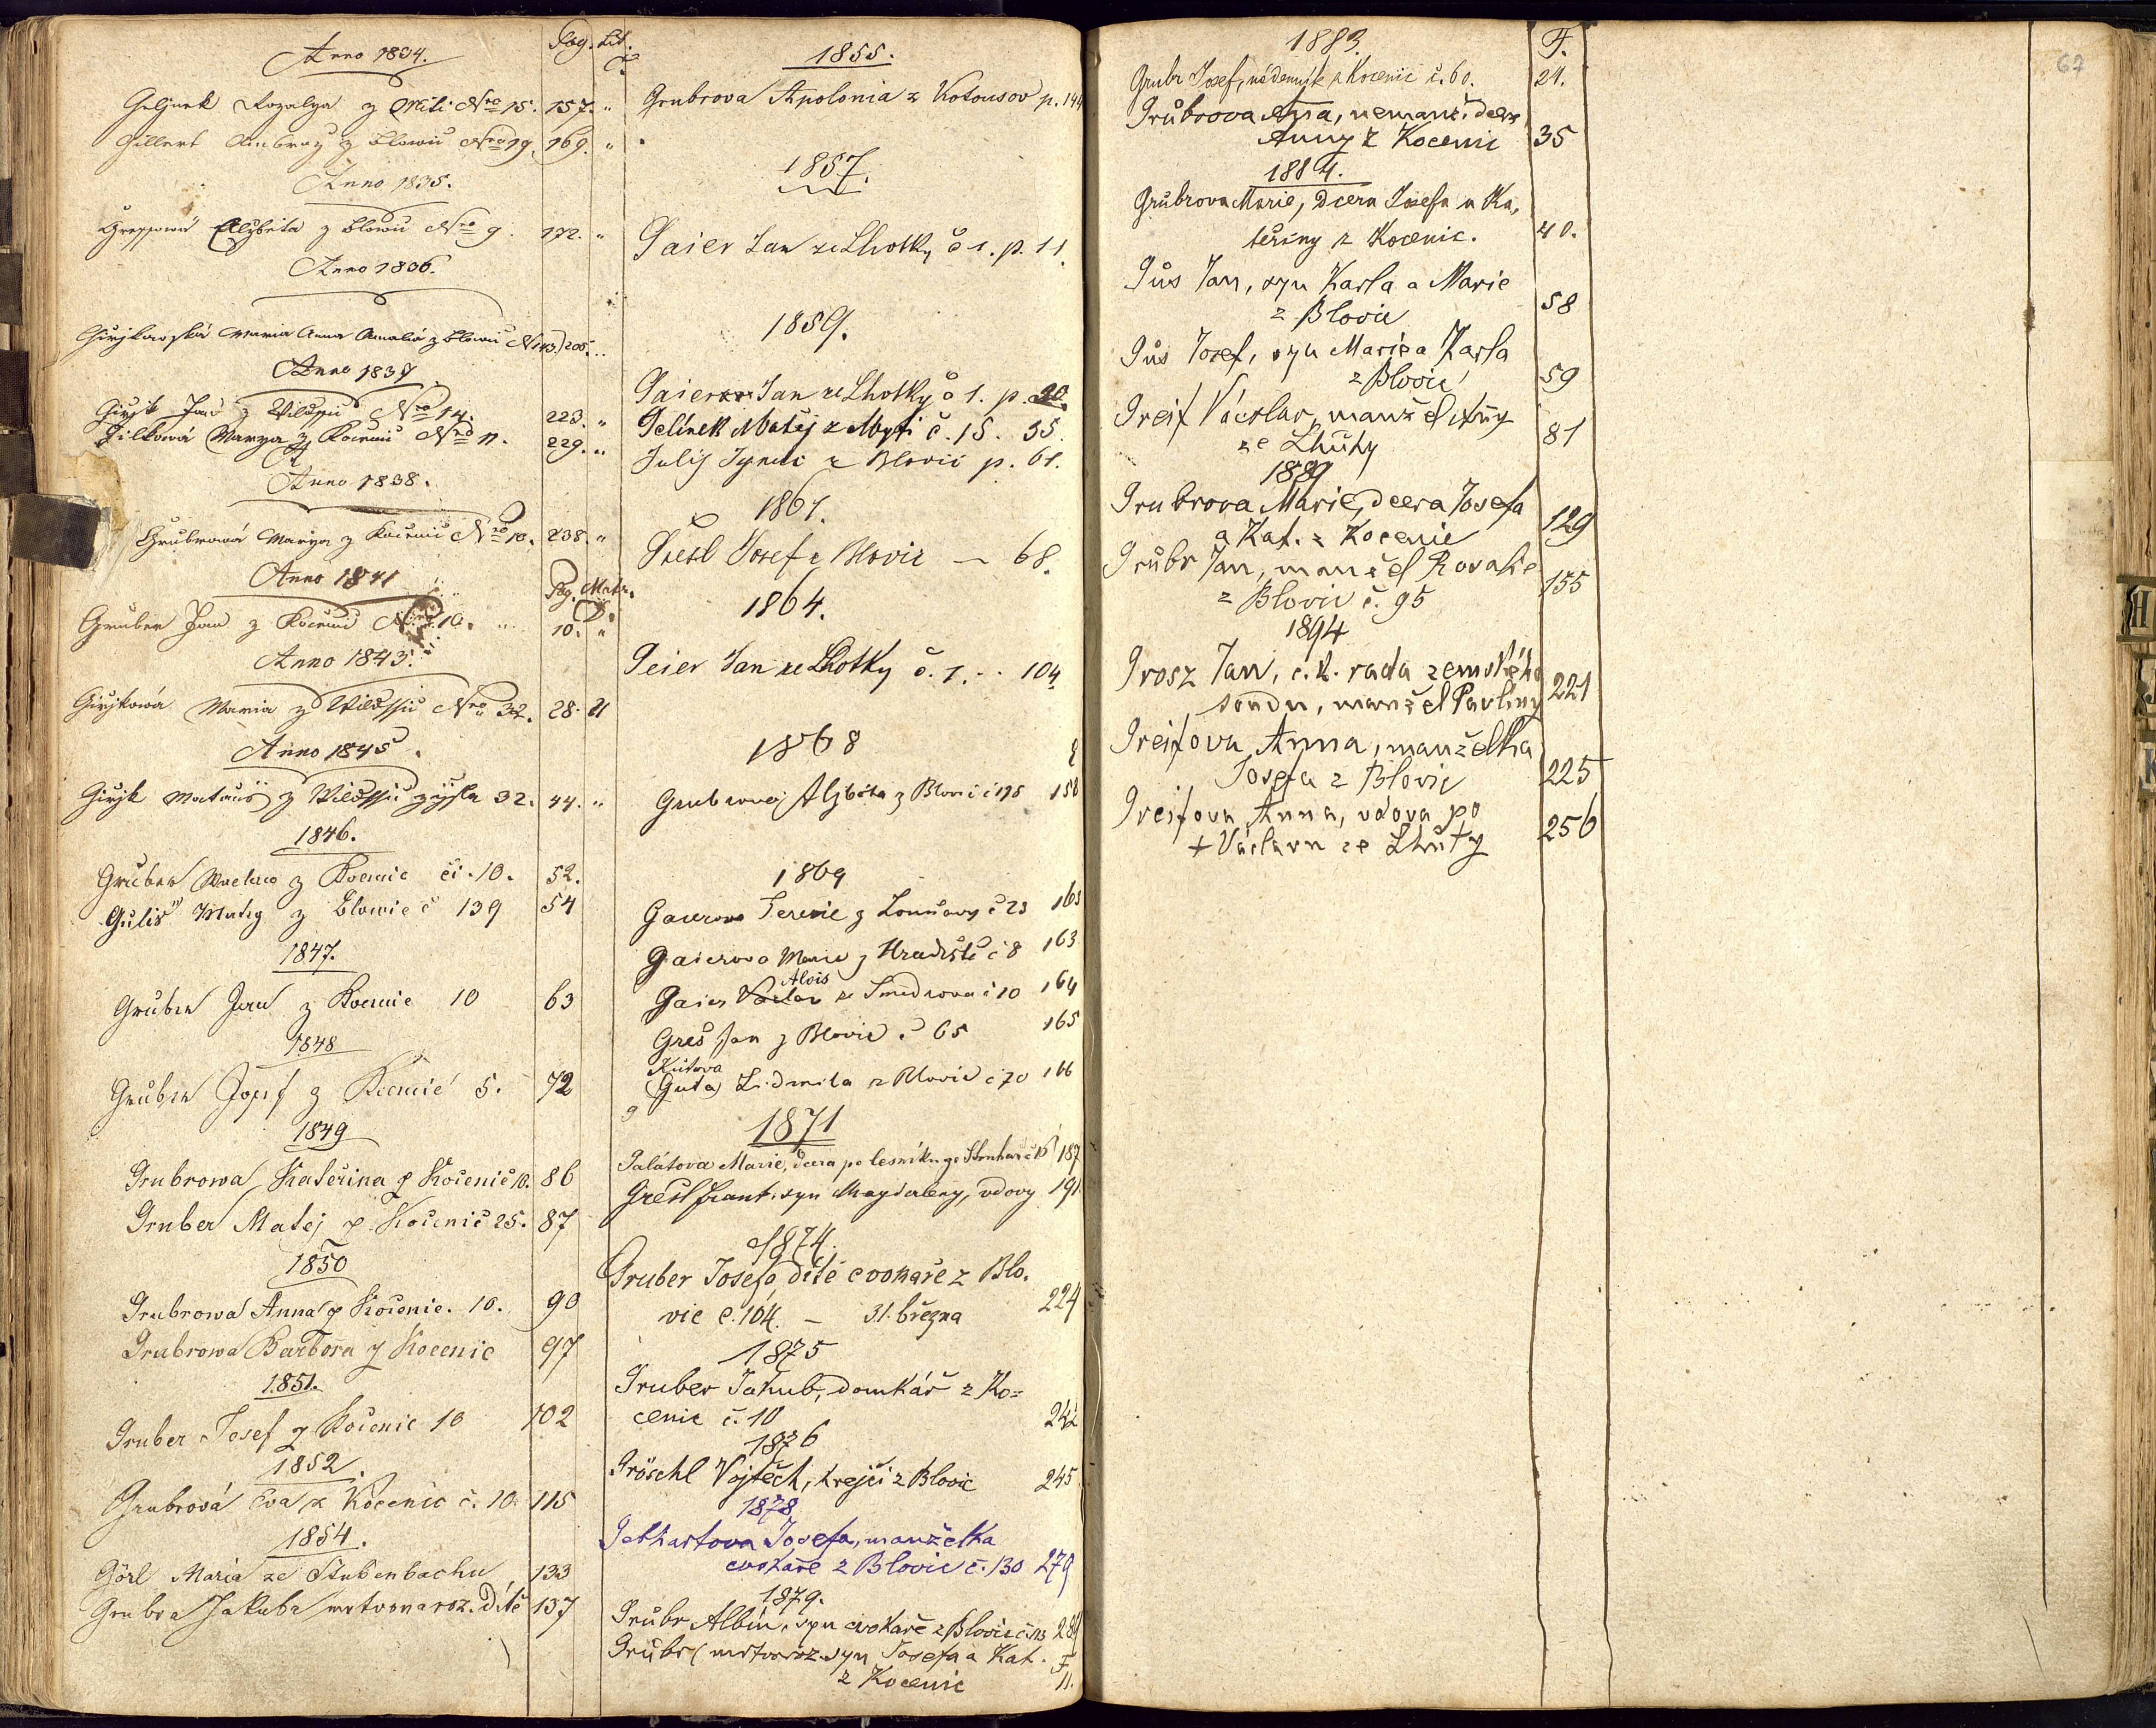 Anno 1834.
Pag. Lit.
C.
Geljnek Rozalya z Miti Nro 15. 157. "
Gillert Ambroz z Blowic Nro 19. 169. "
Anno 1835.
Elizbieta z Blowic Nro 9. 172. "
Anno 1836.
Maria Anna Amalia z Blowic Nro 43. 206.
Anno 1837
Girjk Jan z Nro 14. 223. "
Marya z Kocenic Nro 11. 229. "
Anno 1838.
Grubrowá Marya z Kocenic Nro 10. 238. "
Anno 1841
Pag. Matr.
D.
Gruber Jan z Kocenic Nro 10. 10. "
Anno 1843.
Girjkowá Maria z Nro 32. 28. 21
Anno 1845.
Girjk Mataus z 32. 44. "
1846.
Gruber z Kocenic či. 10. 52.
Gulis Matig z Blowic č 139 54
1847.
Gruber Jan z Kocenic 10 63
1848
Gruber Josef z Kocenic 5. 72
1849
Grubrowa Kateřina z Kocenic 10. 86
Gruber Matej z Kocenic 25. 87
1850
Grubrowa Anna z Kocenic. 10. 90
Grubrowa Barbora z Kocenic 97
1851.
Gruber Josef z Kocenic 10 102
1852.
Grubrová Eva z Kocenic č. 10. 115
1854.
Görl Maria ze Stubenbachu 133
Grubra Jakuba mrtvonaroz. Dítě 137
1855.
Grubrova Apolonia z Kotousov p. 144
1857.
Gaier Jan ze Lhotky č 1. p. 11.
1859.
Gaier Jan ze Lhotky č 1. p. 20.
Gelinek Matěj z Myti č. 15. 35.
Julij z Blovic p. 61.
1861.
Josef z Blovic — 68.
1864.
Geier Jan ze Lhotky č. 1. .. 104.
1868
Grubrova Alzběta z Blovic č 158
1869
Gaierova Terezie z č 23 163
Gaierova Marie z Hradiště č 8 163
Alois
Gaier Václav ze Smedrova č 10 164
Greš Jan z Blovic č 65 165
Kutova
(Guta) Lidmila z Blovic č 70 166
1871
Galátova Marie, dcera po lesníku 187
Grešl Frant. syn Magdaleny, vdovy 191
1874.
Gruber Josefa, dítě cvokaře z Blo.
vic č. 104. — 31. března 224
1875
Gruber Jakub, domkář z Ko=
cenic č. 10 242
1876
Gröschl Vojtěch, krejčí z Blovic 245
1878
Gebhartova Josefa, manželka
cvokaře z Blovic č. 130 279
1879.
Grubr Albín, syn cvokaře z Blovic
Grubr (mrtvoroz. syn Josefa a Kat. F
z Kocenic 11.
67
1883. F.
Grubr Josef, nádenník z Kocenic č. 60. 21.
Grubrova Anna, nemanž. dcera
Anny z Kocenic 35
1884.
Grubrova Marie, dcera Josefa a Ka,
teřiny z Kocenic. 40.
Gus Jan, syn Karla a Marie
z Blovic 58
Gus Josef, syn Marie a Karla
z Blovic 59
Greif Václav, manžel Anny
ze Lhůty 81
1889
Grubrova Marie, dcera Josefa
a Kat. z Kocenic 129
Grubr Jan, manžel Rosalie
z Blovic č. 95 155
1894
Grosz Jan, c. k. rada zemského
soudu, manžel Pavliny 221
Greifova Anna, manželka
Josefa z Blovic 225
Greifova Anna, vdova po
+ Václavu ze Lhůty 256